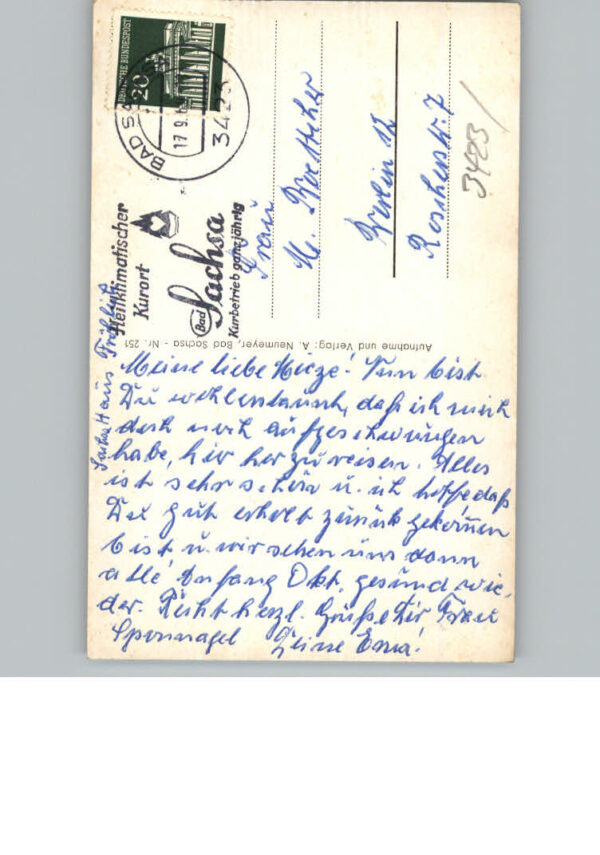 DEUTSCHE BUNDESPOST
20
BAD SA
17.9.6
3423
Heilklimatischer
Kurort
Bad Sachsa
Kurbetrieb ganzjährig
Frau
M. Boettcher
Berlin 12
Roscherstr. 7
3423
Aufnahme und Verlag: A. Neumeyer, Bad Sachsa - Nr. 251
Haus Fröhlich
Meine liebe Mieze! Nun bist
Du wohl erstaunt, daß ich mich
doch noch aufgeschwungen
habe, hier her zu reisen. Alles
ist sehr schön u. ich hoffe daß
Du gut erholt zurück gekommen
bist u. wir sehen uns dann
alle Anfang Okt. gesund wie,
der. Recht herzl. Grüße Dir Frau
Sponnagel Deine Erna!